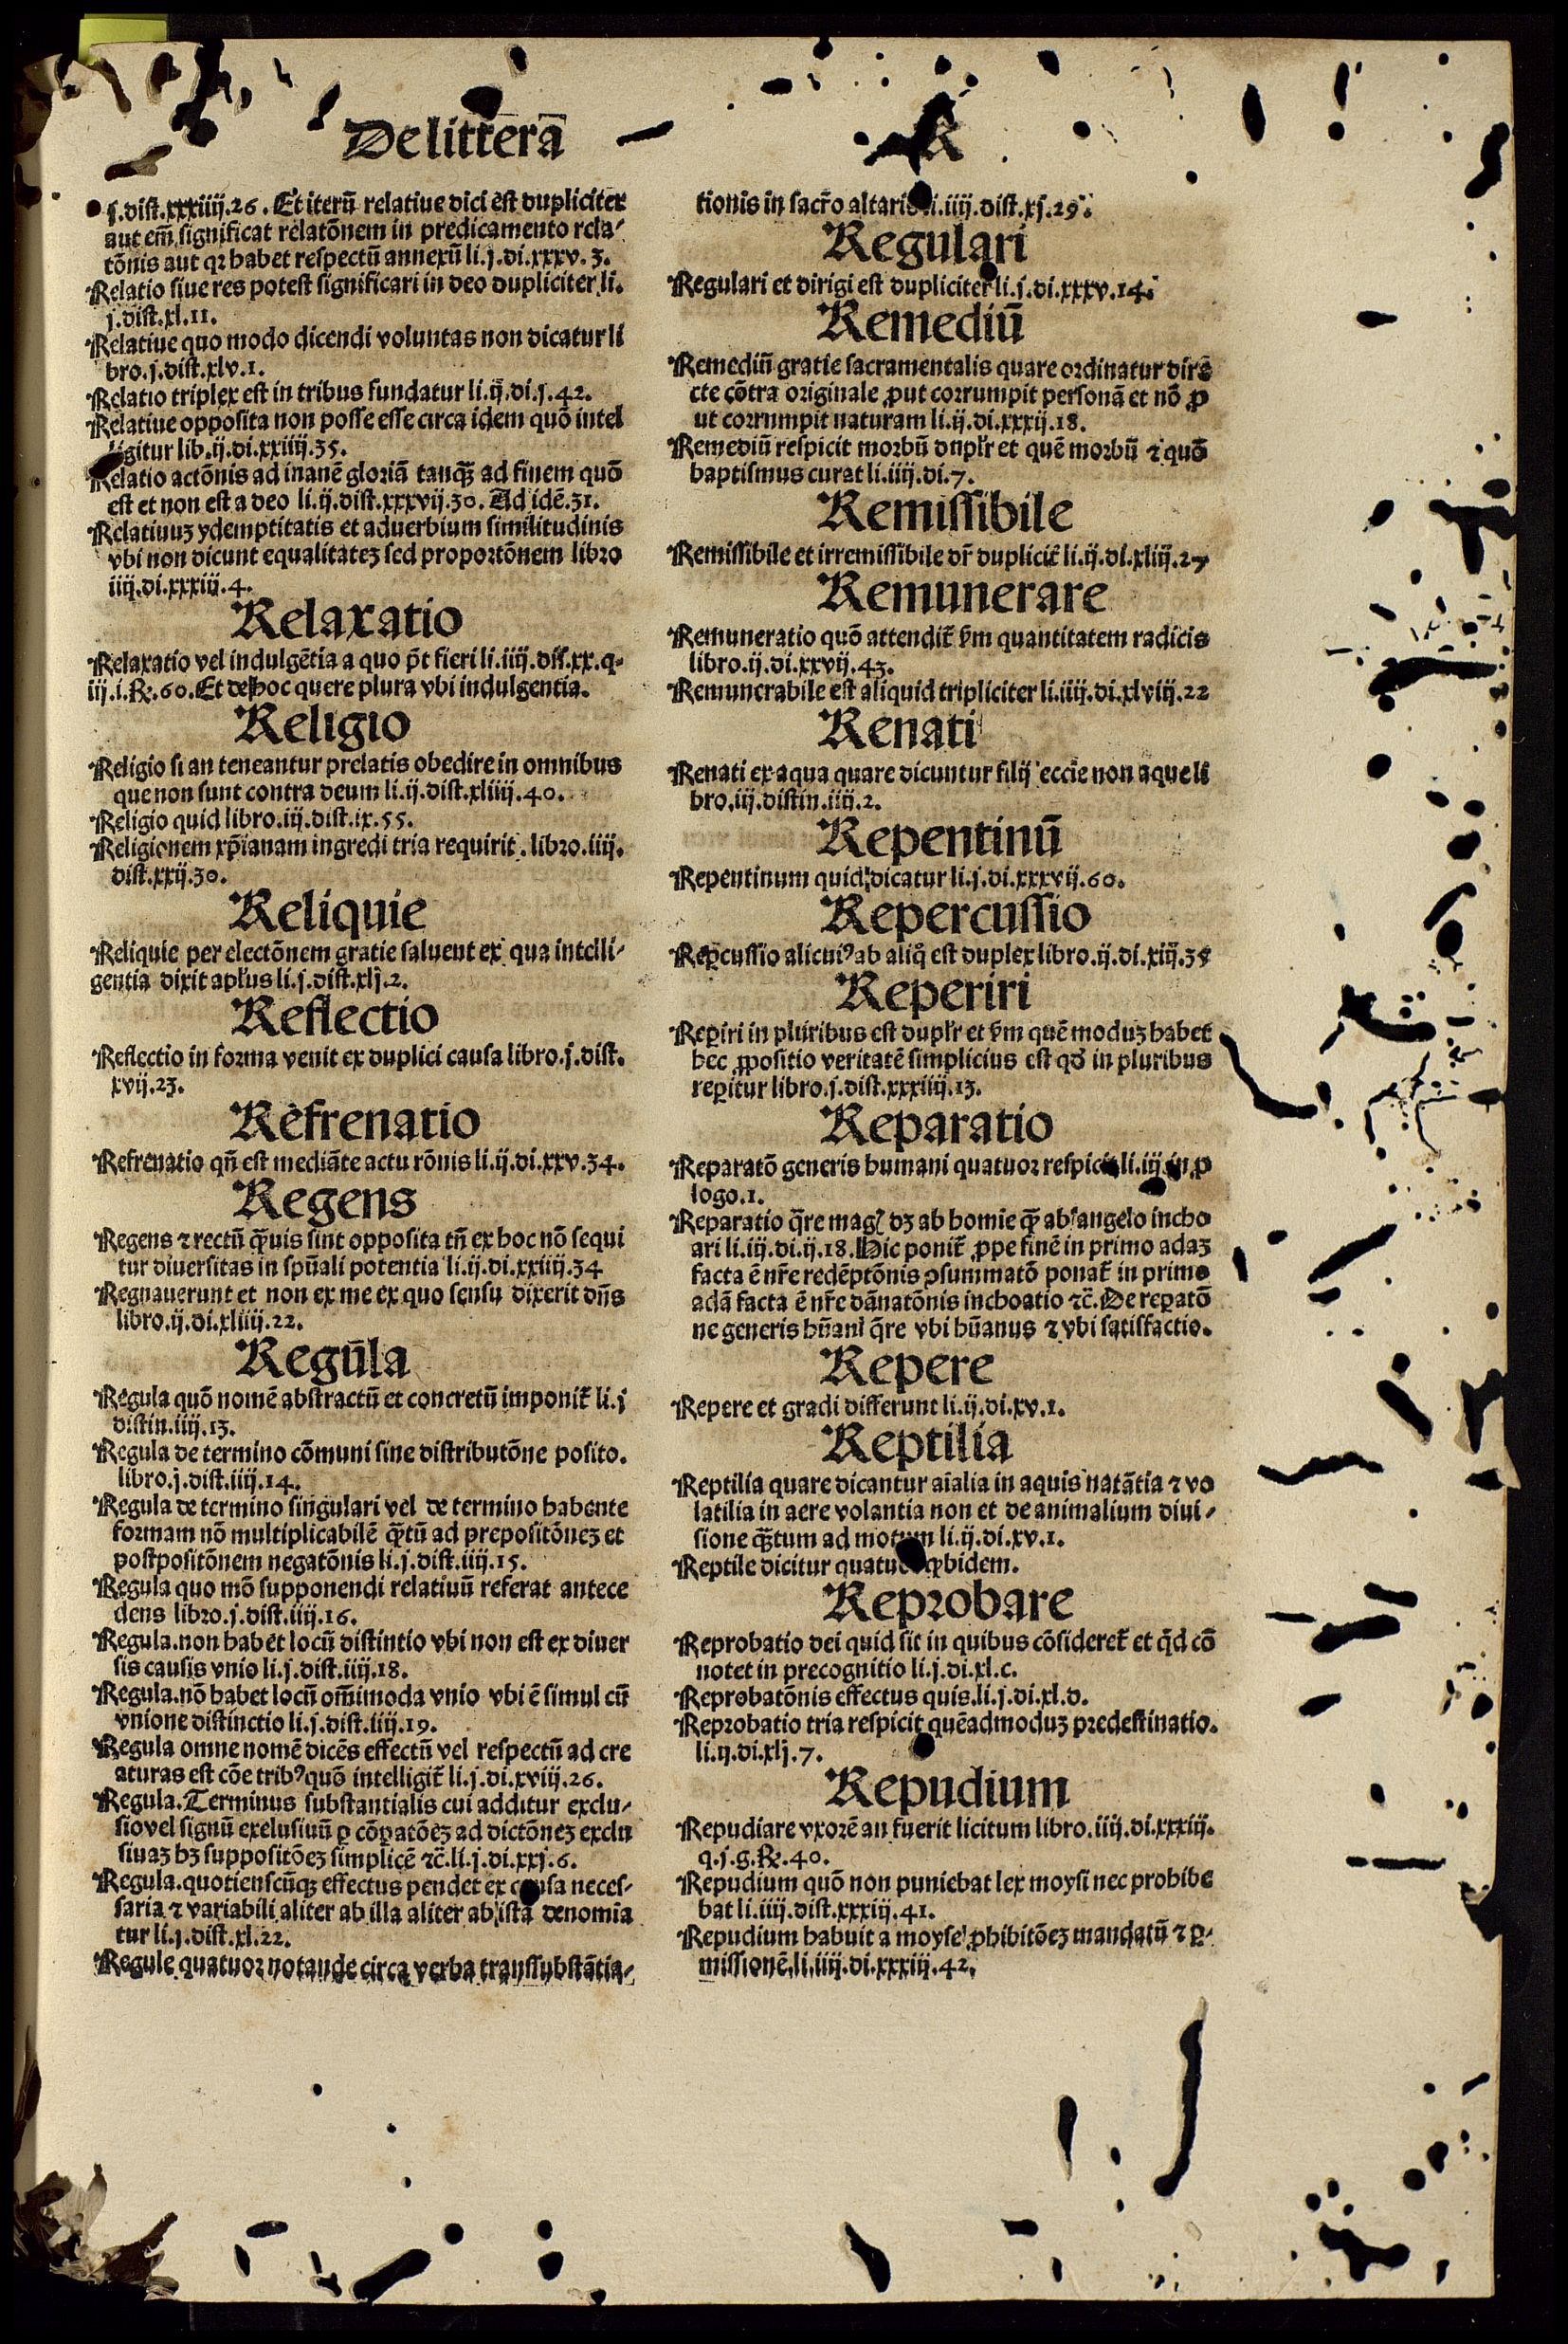 De litterā R
ſ.diſt.xxxiiij.26. Et iterū relatiue dici est dupliciter
aut em̄ significat relatōnem in predicamento rela-
tōnis aut qꝛ habet respectū annexū li.j.di.xxxv.3.
Relatio siue res potest significari in deo dupliciter li.
j.dist.xl.11.
Relatiue quo modo dicendi voluntas non dicatur li
bro.j.dist.xlv.1.
Relatio triplex est in tribus fundatur li.ij.di.j.42.
Relatiue opposita non posse esse circa idem quō intel
ligitur lib.ij.di.xxiiij.35.
Relatio actōnis ad inanē gloriā tanqꝫ ad finem quō
est et non est a deo li.ij.dist.xxxvij.30. Ad idē.31.
Relatiuuꝫ ydemptitatis et aduerbium similitudinis
vbi non dicunt equalitateꝫ sed proportōnem libro
iiij.di.xxxiij.4.
Relaxatio
Relaxatio vel indulgētia a quo pōt fieri li.iiij.dis.xx.q.
iij.i.℞.60. Et de hoc quere plura vbi indulgentia.
Religio
Religio si an teneantur prelatis obedire in omnibus
que non sunt contra deum li.ij.dist.xliiij.40.
Religio quid libro.iij.dist.ix.55.
Religionem xp̄ianam ingredi tria requirit. libro.iiij.
dist.xxij.30.
Reliquie
Reliquie per electōnem gratie saluent ex qua intelli-
gentia dixit apl'us li.j.dist.xlj.2.
Reflectio
Reflectio in forma venit ex duplici causa libro.j.dist.
xvij.23.
Refrenatio
Refrenatio qn̄ est mediāte actu rōnis li.ij.di.xxv.34.
Regens
Regens ⁊ rectū qꝫuis sint opposita tn̄ ex hoc nō sequi
tur diuersitas in spūali potentia li.ij.di.xxiiij.34
Regnauerunt et non ex me ex quo sensu dixerit dn̄s
libro.ij.di.xliiij.22.
Regūla
Regula quō nomē abstractū et concretū imponit̄ li.j
distin.iiij.13.
Regula de termino cōmuni sine distributōne posito.
libro.j.dist.iiij.14.
Regula de termino singulari vel de termino habente
formam nō multiplicabilē qꝫtū ad prepositōneꝫ et
postpositōnem negatōnis li.j.dist.iiij.15.
Regula quo mō supponendi relatiuū referat antece
dens libro.j.dist.iiij.16.
Regula.non habet locū distintio vbi non est ex diuer
sis causis vnio li.j.dist.iiij.18.
Regula.nō habet locū om̄imoda vnio vbi ē simul cū
vnione distinctio li.j.dist.iiij.19.
Regula omne nomē dicēs effectū vel respectū ad cre
aturas est cōe tribꝰ quō intelligit̄ li.j.di.xviij.26.
Regula.Terminus substantialis cui additur exclu-
sio vel signū exelusiuū ꝑ cōꝑatōeꝫ ad dictōneꝫ exclu
siuaꝫ hꝫ suppositōeꝫ simplicē ⁊c̄.li.j.di.xxj.6.
Regula.quotienscūqꝫ effectus pendet ex causa neces-
saria ⁊ variabili aliter ab illa aliter ab ista denomīa
tur li.j.dist.xl.22.
Regule quatuor notande circa verba transsubstātia-
tionis in sacr̄o altaris li.iiij.dist.xj.29.
Regulari
Regulari et dirigi est dupliciter li.j.di.xxxv.14.
Remediū
Remediū gratie sacramentalis quare ordinatur dire
cte cōtra originale ꝓut corrumpit personā et nō ꝓ
ut corrumpit naturam li.ij.di.xxxij.18.
Remediū respicit morbū dupl'r et quē morbū ⁊ quō
baptismus curat li.iiij.di.7.
Remissibile
Remissibile et irremissibile dr̄ duplicit̄ li.ij.di.xliij.27
Remunerare
Remuneratio quō attendit̄ ẜm quantitatem radicis
libro.ij.di.xxvij.43.
Remunerabile est aliquid tripliciter li.iiij.di.xlviij.22
Renati
Renati ex aqua quare dicuntur filij eccīe non aque li
bro.iij.distin.iiij.2.
Repentinū
Repentinum quid dicatur li.j.di.xxxvij.60.
Repercussio
Reꝑcussio alicuiꝰ ab aliq̄ est duplex libro.ij.di.xiij.35
Reperiri
Reꝑiri in pluribus est dupl'r et ẜm quē moduꝫ habet
hec ꝓpositio veritatē simplicius est qd' in pluribus
reꝑitur libro.j.dist.xxxiiij.13.
Reparatio
Reparatō generis humani quatuor respicit li.iij.in ꝓ
logo.1.
Reparatio q̄re mag dꝫ ab homīe qꝫ ab angelo incho
ari li.iij.di.ij.18. Hic ponit̄ ꝓpe finē in primo adaꝫ
facta ē nr̄e redēptōnis ꝯsummatō ponat̄ in primo
adā facta ē nr̄e dānatōnis inchoatio ⁊c̄. De reꝑatō
ne generis hūani q̄re vbi hūanus ⁊ vbi satisfactio.
Repere
Repere et gradi differunt li.ij.di.xv.1.
Reptilia
Reptilia quare dicantur aīalia in aquis natātia ⁊ vo
latilia in aere volantia non et de animalium diui-
sione qꝫtum ad motum li.ij.di.xv.1.
Reptile dicitur ibidem.
Reprobare
Reprobatio dei quid sit in quibus cōsideret̄ et qd cō
notet in precognitio li.j.di.xl.c.
Reprobatōnis effectus quis.li.j.di.xl.d.
Reprobatio tria respicit quēadmoduꝫ predestinatio.
li.ij.di.xlj.7.
Repudium
Repudiare vxorē an fuerit licitum libro.iiij.di.xxxiij.
q.j.g.℞.40.
Repudium quō non puniebat lex moysi nec prohibe
bat li.iiij.dist.xxxiij.41.
Repudium habuit a moyse ꝓhibitōeꝫ mandatū ⁊ ꝑ-
missionē.li.iiij.di.xxxiij.42.